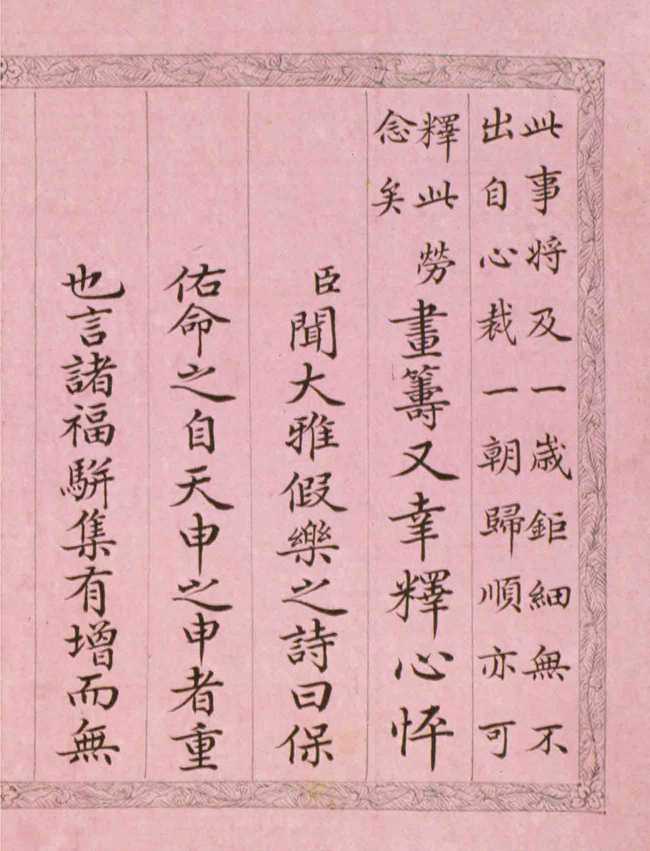 此事将及一歳鉅細無不
出自心裁一朝歸順亦可
釋此勞
念矣
畫籌又幸釋心怦
臣聞大雅假樂之詩曰保
佑命之自天申之申者重
也言諸福駢集有增而無